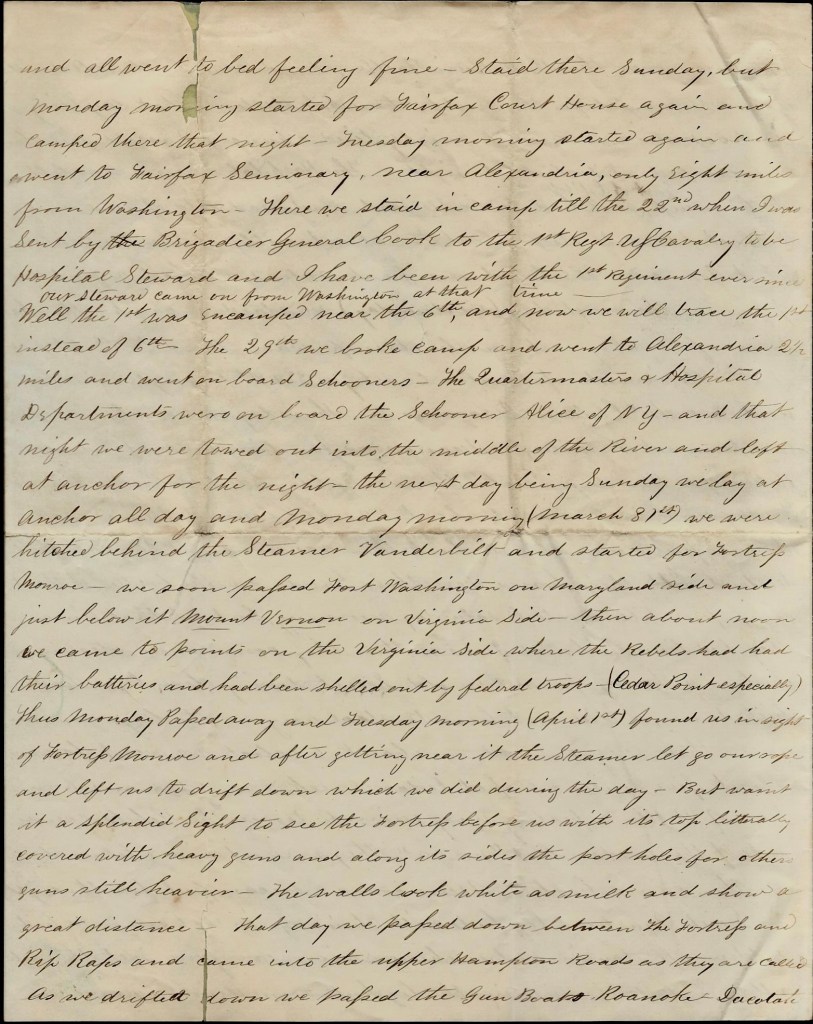 and all went to bed feeling fine – Staid there Sunday, but
Monday morning started for Fairfax Court House again and
Camped there that night – Tuesday morning started again and
went to Fairfax Seminary, near Alexandria, only Eight miles
from Washington – There we staid in camp till the 22nd when I was
Sent by the Brigadier General Cook to the 1st Regt US Cavalry to be
Hospital Steward and I have been with the 1st Regiment ever since
our steward came on from Washington at that time –
Well the 1st was Encamped near the 6th, and now we will trace the 1st
instead of 6th – The 29th we broke camp and went to Alexandria 2½
miles and went on board Schooners – The Quartermasters & Hospital
Departments were on board the Schooner Alice of NY – and that
night we were towed out into the middle of the River and left
at anchor for the night – the next day being Sunday we lay at
anchor all day and Monday morning (March 31st) we were
hitched behind the Steamer Vanderbilt and started for Fortress
Monroe – we soon passed Fort Washington on Maryland side and
just below it Mount Vernon on Virginia Side – then about noon
we came to points on the Virginia Side where the Rebels had had
their batteries and had been shelled out by federal troops – (Cedar Point especially)
Thus Monday Passed away and Tuesday morning (April 1st) found us in sight
of Fortress Monroe and after getting near it the Steamer let go our rope
and left us to drift down which we did during the day – But warnt
it a Splendid Sight to see the Fortress before us with its top litterally
covered with heavy guns and along its sides the port holes for other
guns still heavier – The walls look white as milk and show a
great distance – That day we passed down between The Fortress and
Rip Raps and came into the upper Hampton Roads as they are called
As we drifted down we passed the Gun Boats Roanoke – Dacotah